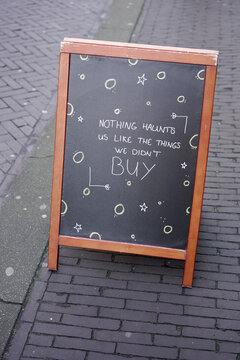 NOTHING HAUNTS
US LIKE THE THINGS
WE DIDN'T
BUY